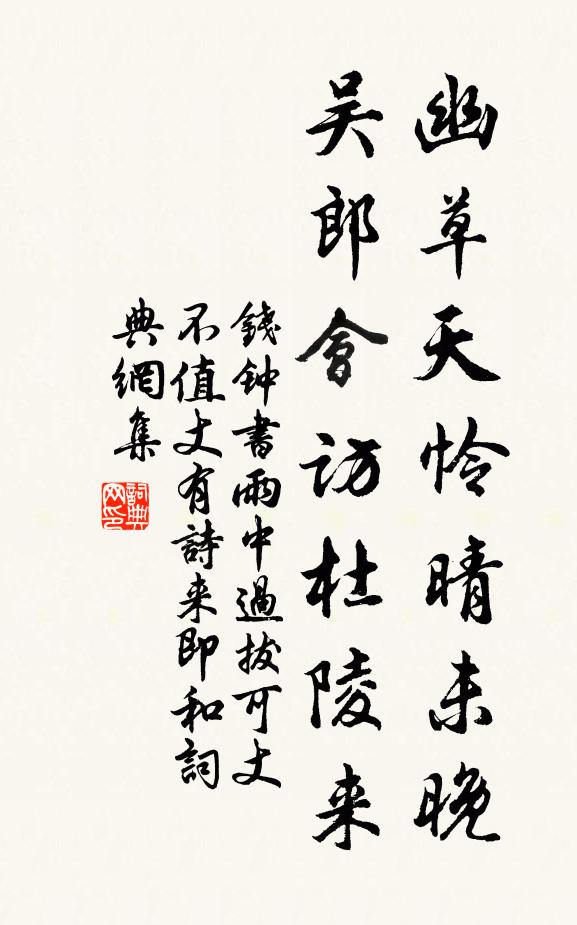 幽草天怜晴未晚
吴郎會访杜陵来
錢钟書雨中過拔可丈
不值丈有詩来即和詞
典網集
詞典
网印